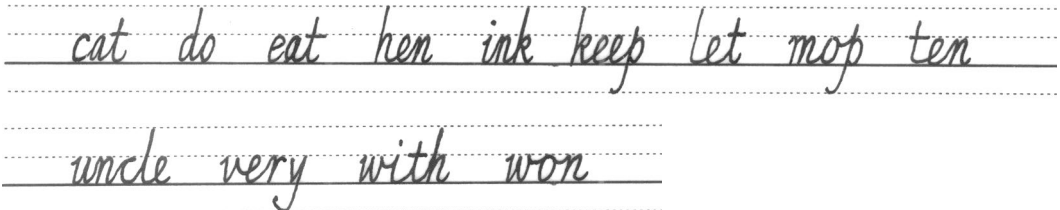 cat do eat hen ink keep let mop ten
uncle very with won